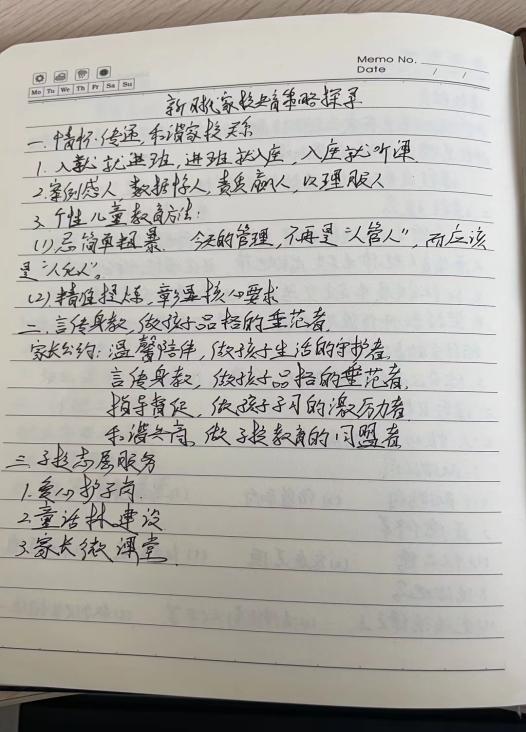 Memo No.
Date / /
Mo Tu We Th Fr Sa Su
新时代家校共育策略探寻
一.情怀传递,和谐家校关系
1.入校就进班,进班就入座,入座就听课
2.案例感人,数据惊人,责质赢人,以理服人
3.个性儿童教育方法:
(1)忌简单粗暴. 今天的管理,不再是"人管人",而应该
是"人化人"。
(2)精准提炼,彰显核心要求
二.言传身教,做孩子品格的垂范者.
家长公约:温馨陪伴,做孩子生活的守护者.
言传身教,做孩子品格的垂范者.
指导督促,做孩子学习的激励者
和谐共商,做学校教育的同盟者
三.学校志愿服务
1.爱心护学岗.
2.童话林建设
3.家长微课堂.